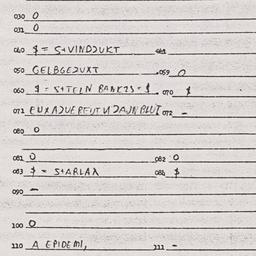 030 0
031 0
040 $ = S+VINDƆUKT 041
050 GELBGEƆUXT 059 0
060 $ = S+TEIN 070 $
071 072 -
080 0
081 0 082 0
083 $ = S+ARLAX 084 $
090 -
100 0
110 A EPIDEMI, 111 -